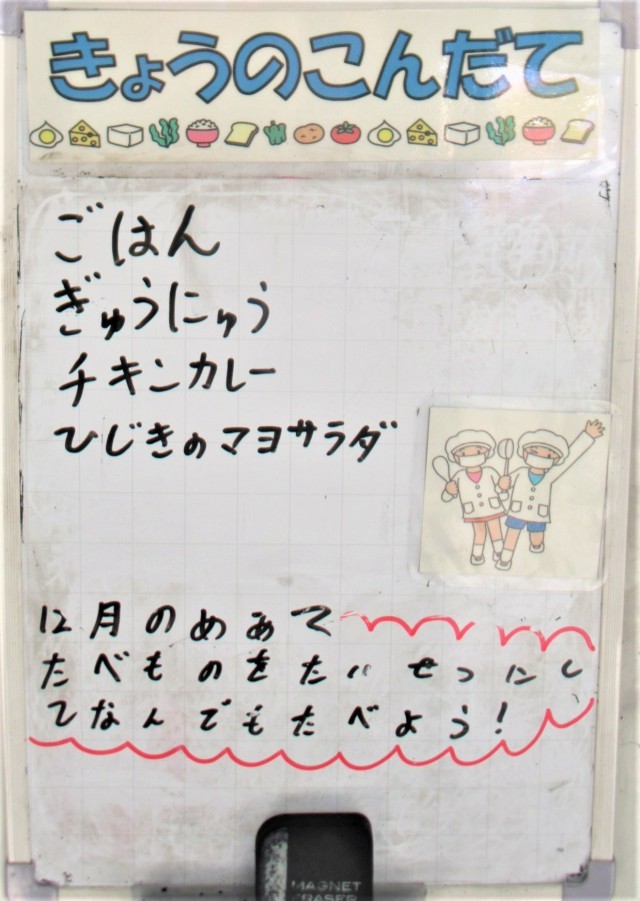 きょうのこんだて
ごはん
ぎゅうにゅう
チキンカレー
ひじきのマヨサラダ
12月のめあて
たべものをたいせつにし
てなんでもたべよう!
MAGNET
ERASER